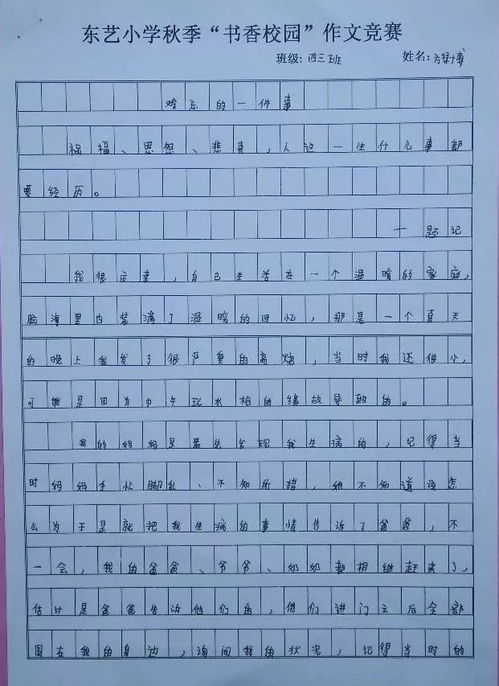 东艺小学秋季“书香校园”作文竞赛
班级:四三班 姓名:
难忘的一件事
祸福、恩怨、悲喜,人这一生什么事都
要经历。
一题记
我很庆幸,自己生活在一个温暖的家庭,
脑海里内装满了温暖的回忆,那是一个夏天
的晚上我发了很严重的高烧,当时我还很小,
可能是因为中午玩水枪的缘故导致的。
我的妈妈是最先发现我生病的,记得当
时妈妈手忙脚乱、不知所措,她不知道该怎
么办于是就把我生病的事情告诉了爸爸,不
一会,我的爸爸、爷爷、奶奶都相继赶来了,
估计是爸爸告诉他们的,他们进门之后全部
围在我的身边,询问我的状况,记得当时的